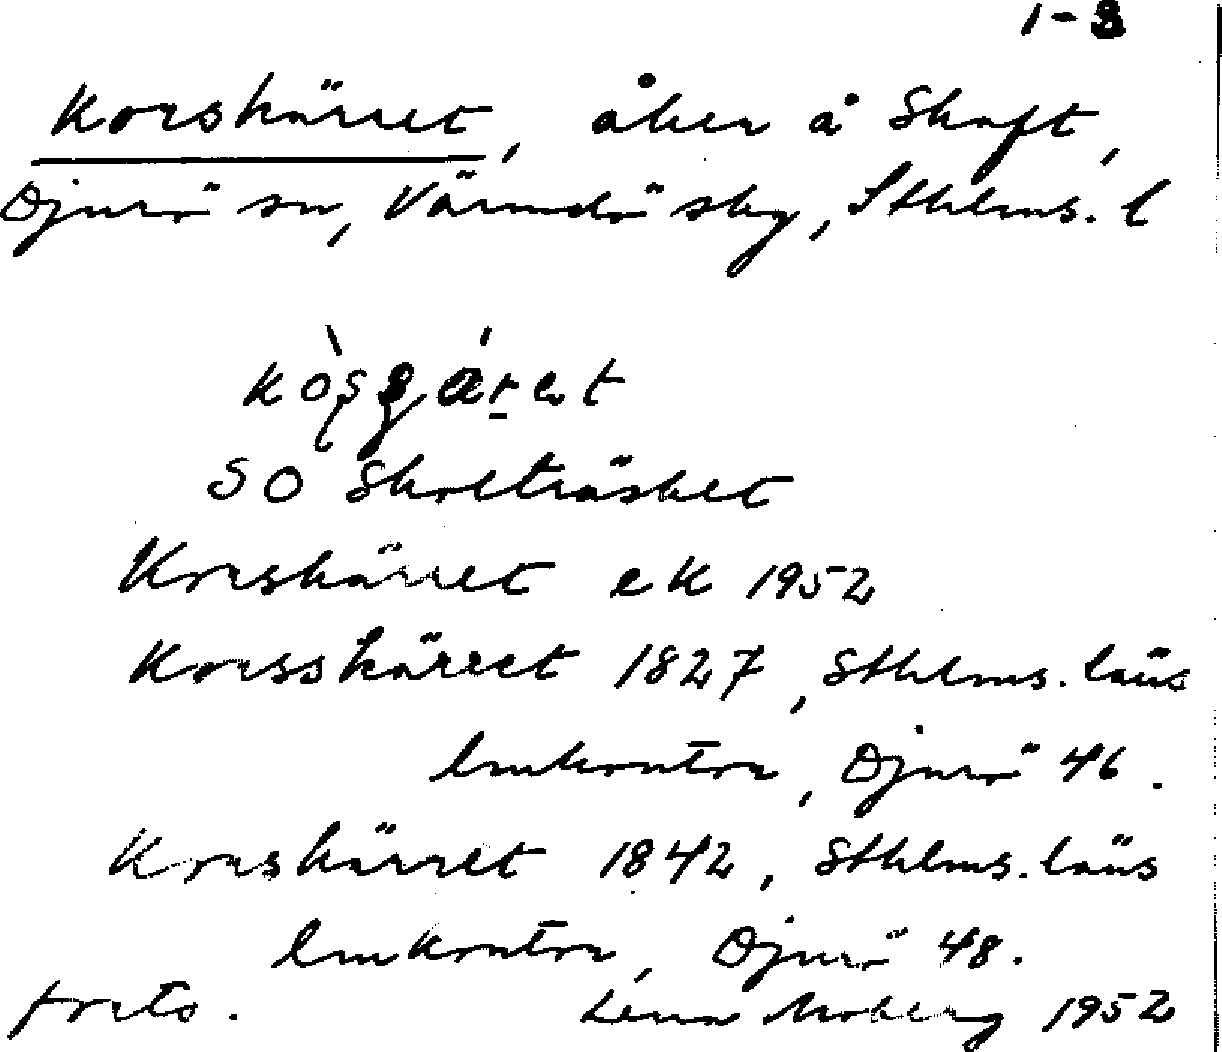 1-3
Korskärret, åker å Skaft,
Djurö sn, Värmdö skg, Sthlms. l
SO Skolträsket
Korskärret eK 1952
Korsskärret 1827, Sthlms. läns
lmkontor, Djurö 46.
Korskärret 1842, Sthlms. läns
lmkontor, Djurö 48.
forts. Lena Moberg 1952